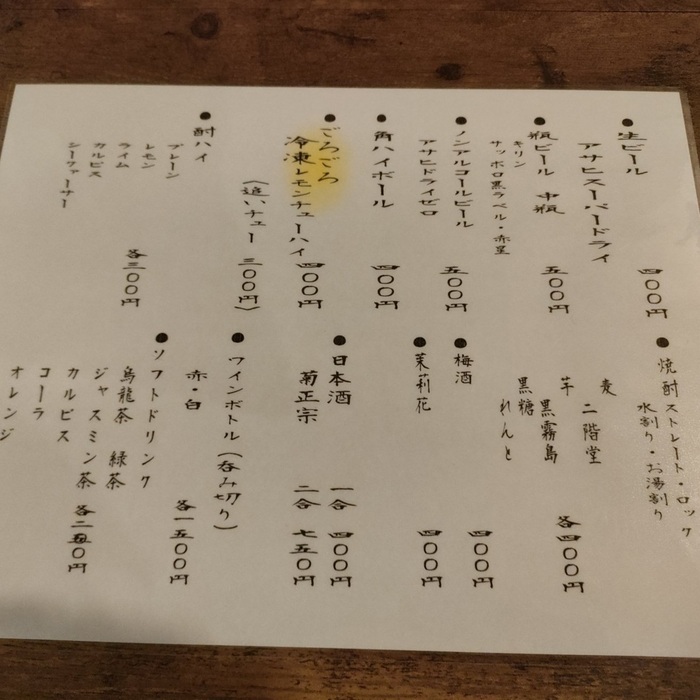 ●生ビール
アサヒスーパードライ
四〇〇円
●瓶ビール 中瓶
キリン
サッポロ黒ラベル・赤星
五〇〇円
●ノンアルコールビール
アサヒドライゼロ
五〇〇円
●角ハイボール
四〇〇円
●ごろごろ
冷凍レモンチューハイ
四〇〇円
(追いチュー 三〇〇円)
●酎ハイ
プレーン
レモン
ライム
カルピス
シークァーサー
各三〇〇円
●焼酎 ストレート・ロック
水割り・お湯割り
麦 二階堂
芋 黒霧島
黒糖 れんと
各四〇〇円
●梅酒
四〇〇円
●茉莉花
四〇〇円
●日本酒
菊正宗
一合 四〇〇円
二合 七五〇円
●ワインボトル(呑み切り)
赤・白
各一五〇〇円
●ソフトドリンク
烏龍茶 緑茶
ジャスミン茶
カルピス
コーラ
オレンジ
各二五〇円